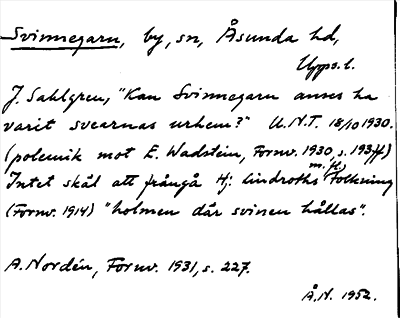 Svinnegarn, by, sn, Åsunda hd,
Uppo. l.
J. Sahlgren, "Kan Svinnegarn anses ha
varit svearnas urhem?" U.N.T. 18/10 1930.
(polemik mot E. Wadstein, Fornv. 1930, s. 193ff)
m. fl.
Intet skäl att frångå Hj. Lindroths tolkning
(Fornv. 1914) "holmen där svinen hållas".
A. Nordén, Fornv. 1931, s. 227.
Å.N. 1952.